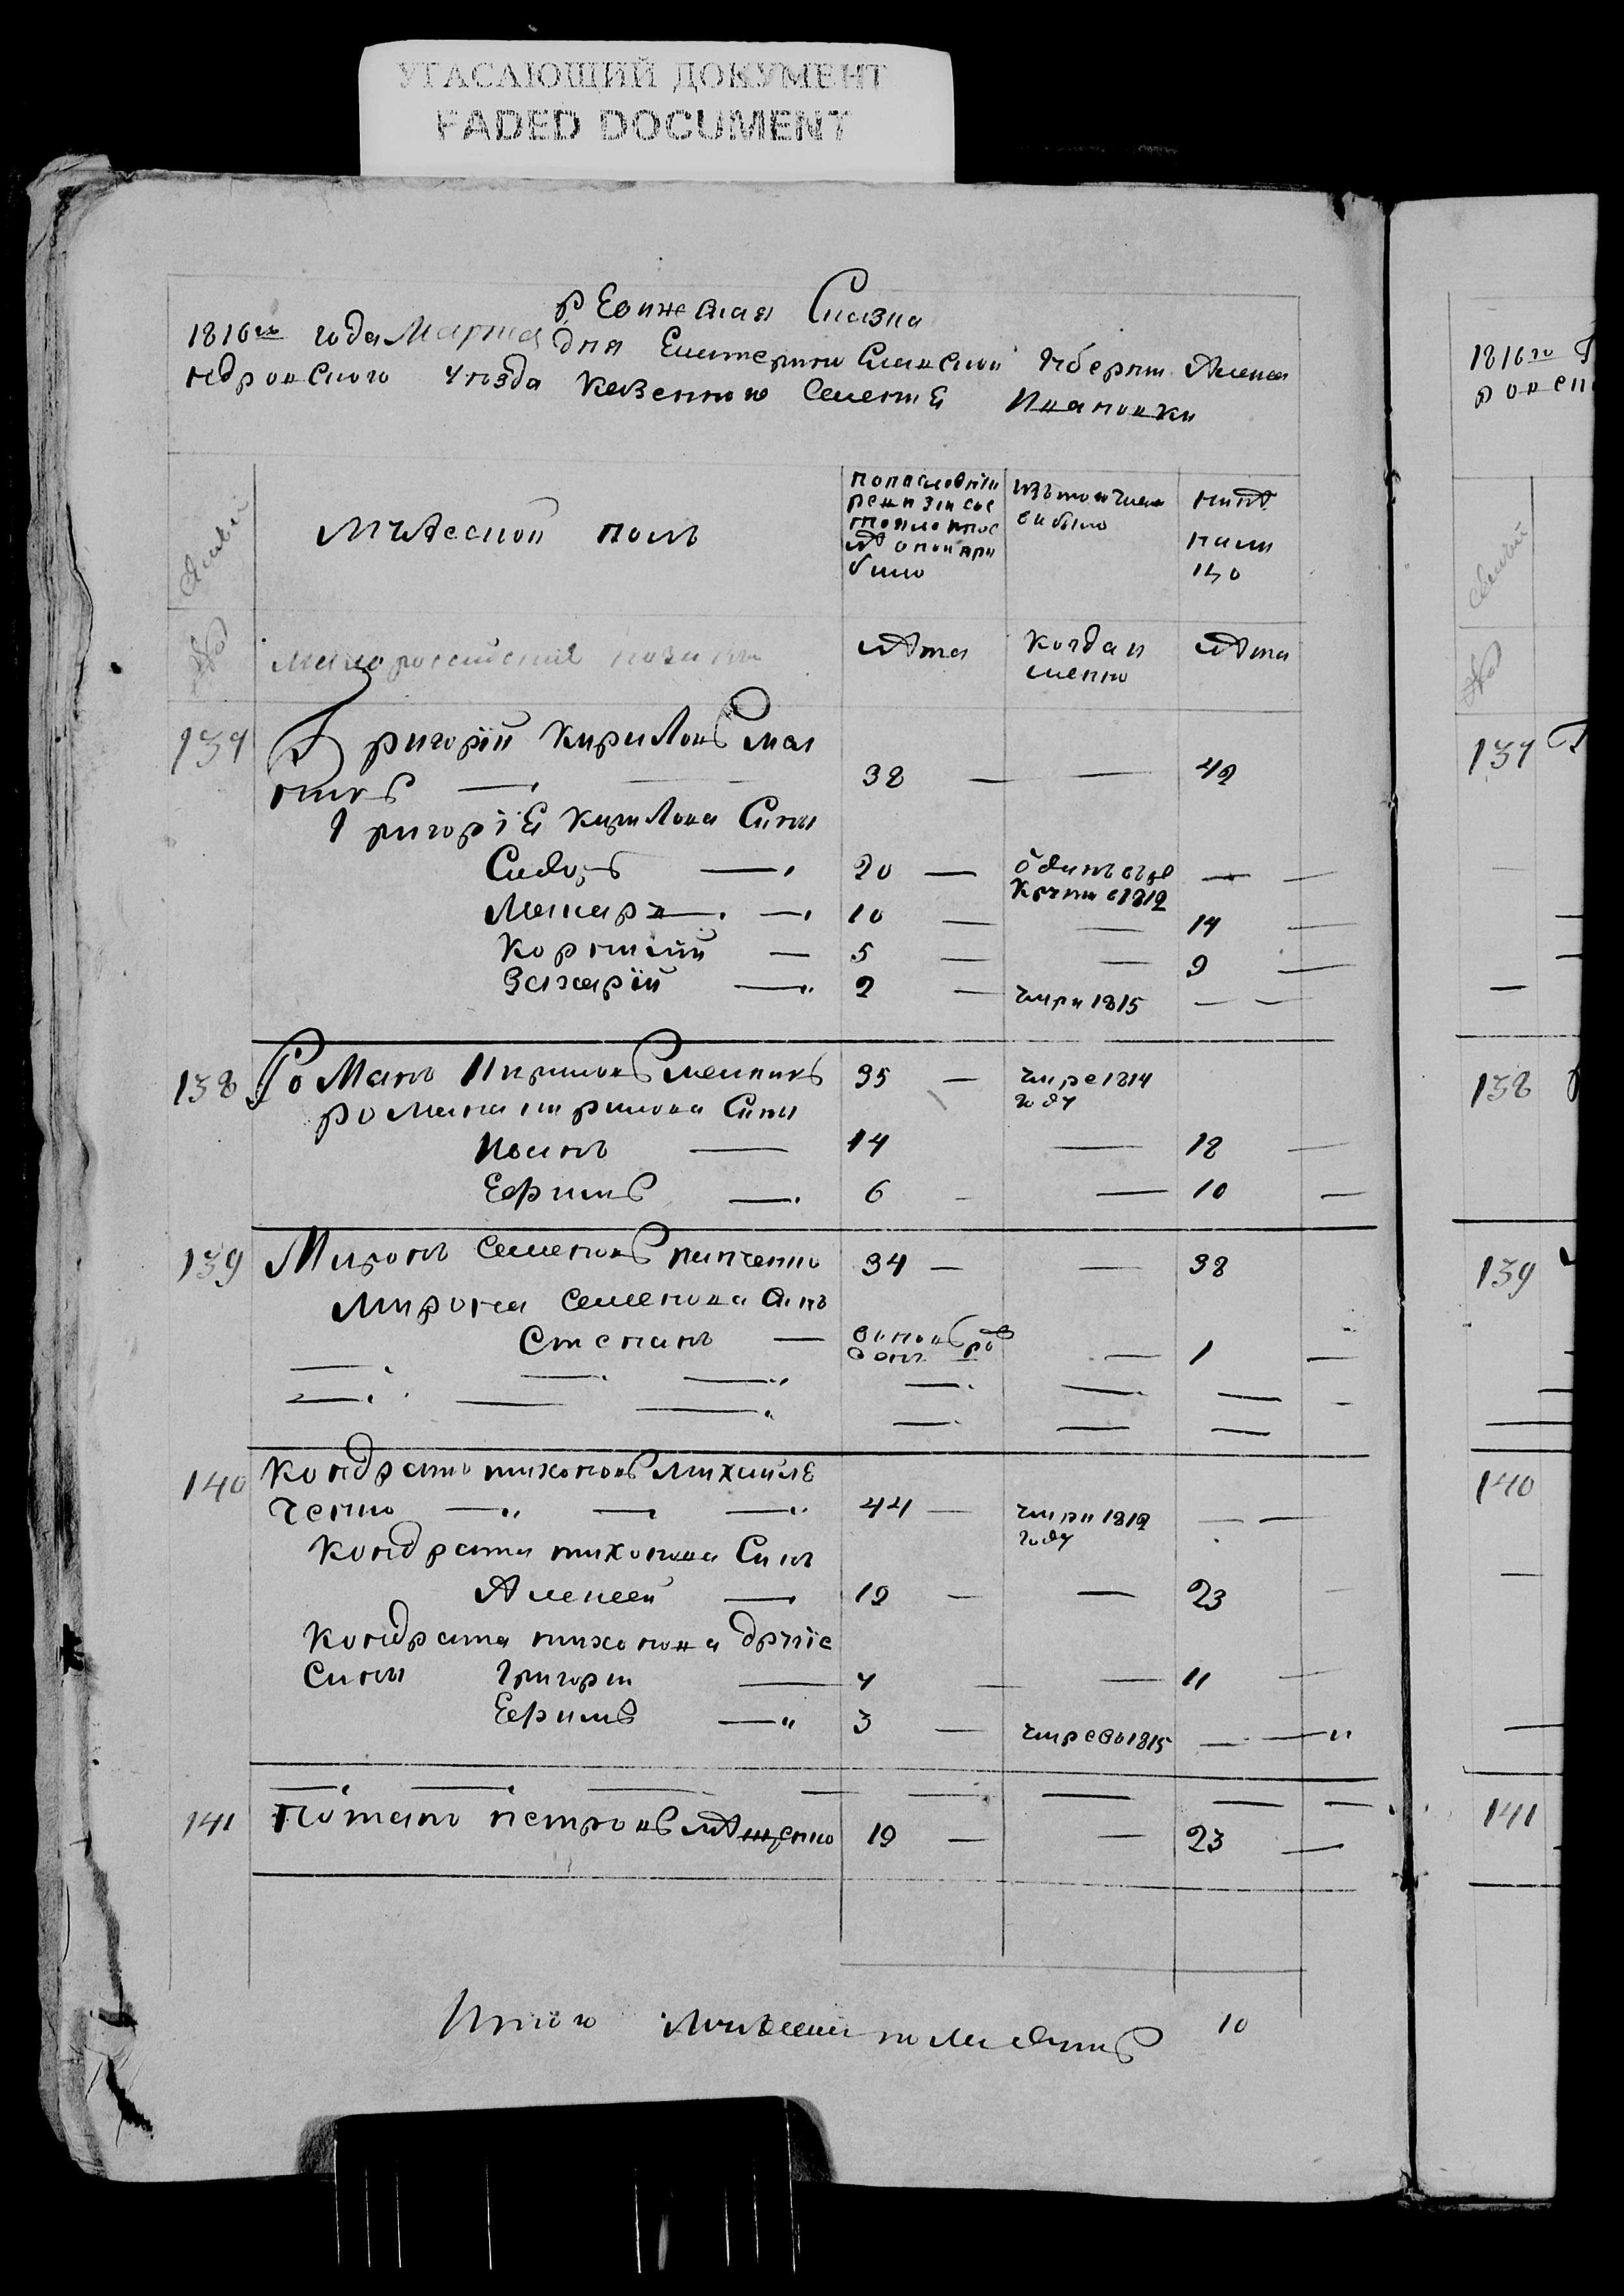 УГАСАЮЩИЙ ДОКУМЕНТ
FADED DOCUMENT
ревижская Сказка
1816го года Марта дня Екатеринославской губернии Алекса
ндровского уезда казенного селения Ивановки
семьи
мужеской полъ
по последней ревизии состояло и после оной прибыло
изъ того числа выбыло
ныне налицо
№
малороссийские казаки
лета
когда именно
лета
137
Григорий Кириловъ
38 — — 42
Григория Кирилова Сыны
Сидоръ — 20 — отданъ въ рекруты в 1812 —
Макаръ — 10 — — 14
Корнилий — 5 — — 9
Захарий — 2 — умре 1815 —
138
Романъ Кириловъ
35 — умре 1814 году
Романа Кирилова Сыны
Иванъ — 14 — 18
Ефимъ — 6 — — 10
139
Миронъ Семеновъ
34 — — 38
Мирона Семенова Сынъ
Степанъ — — 1
140
Кондратъ Тихоновъ Михайле
ченко — 44 — умре 1812 году —
Кондрата Тихонова Сынъ
Алексей — 19 — — 23
Кондрата Тихонова другие
Сыны Григорий — 7 — — 11
Ефимъ — 3 — умре в 1815 —
141
Потапъ Петровъ
19 — — 23
Итого мужеска пола душъ 10
1816го
137
138
139
140
141